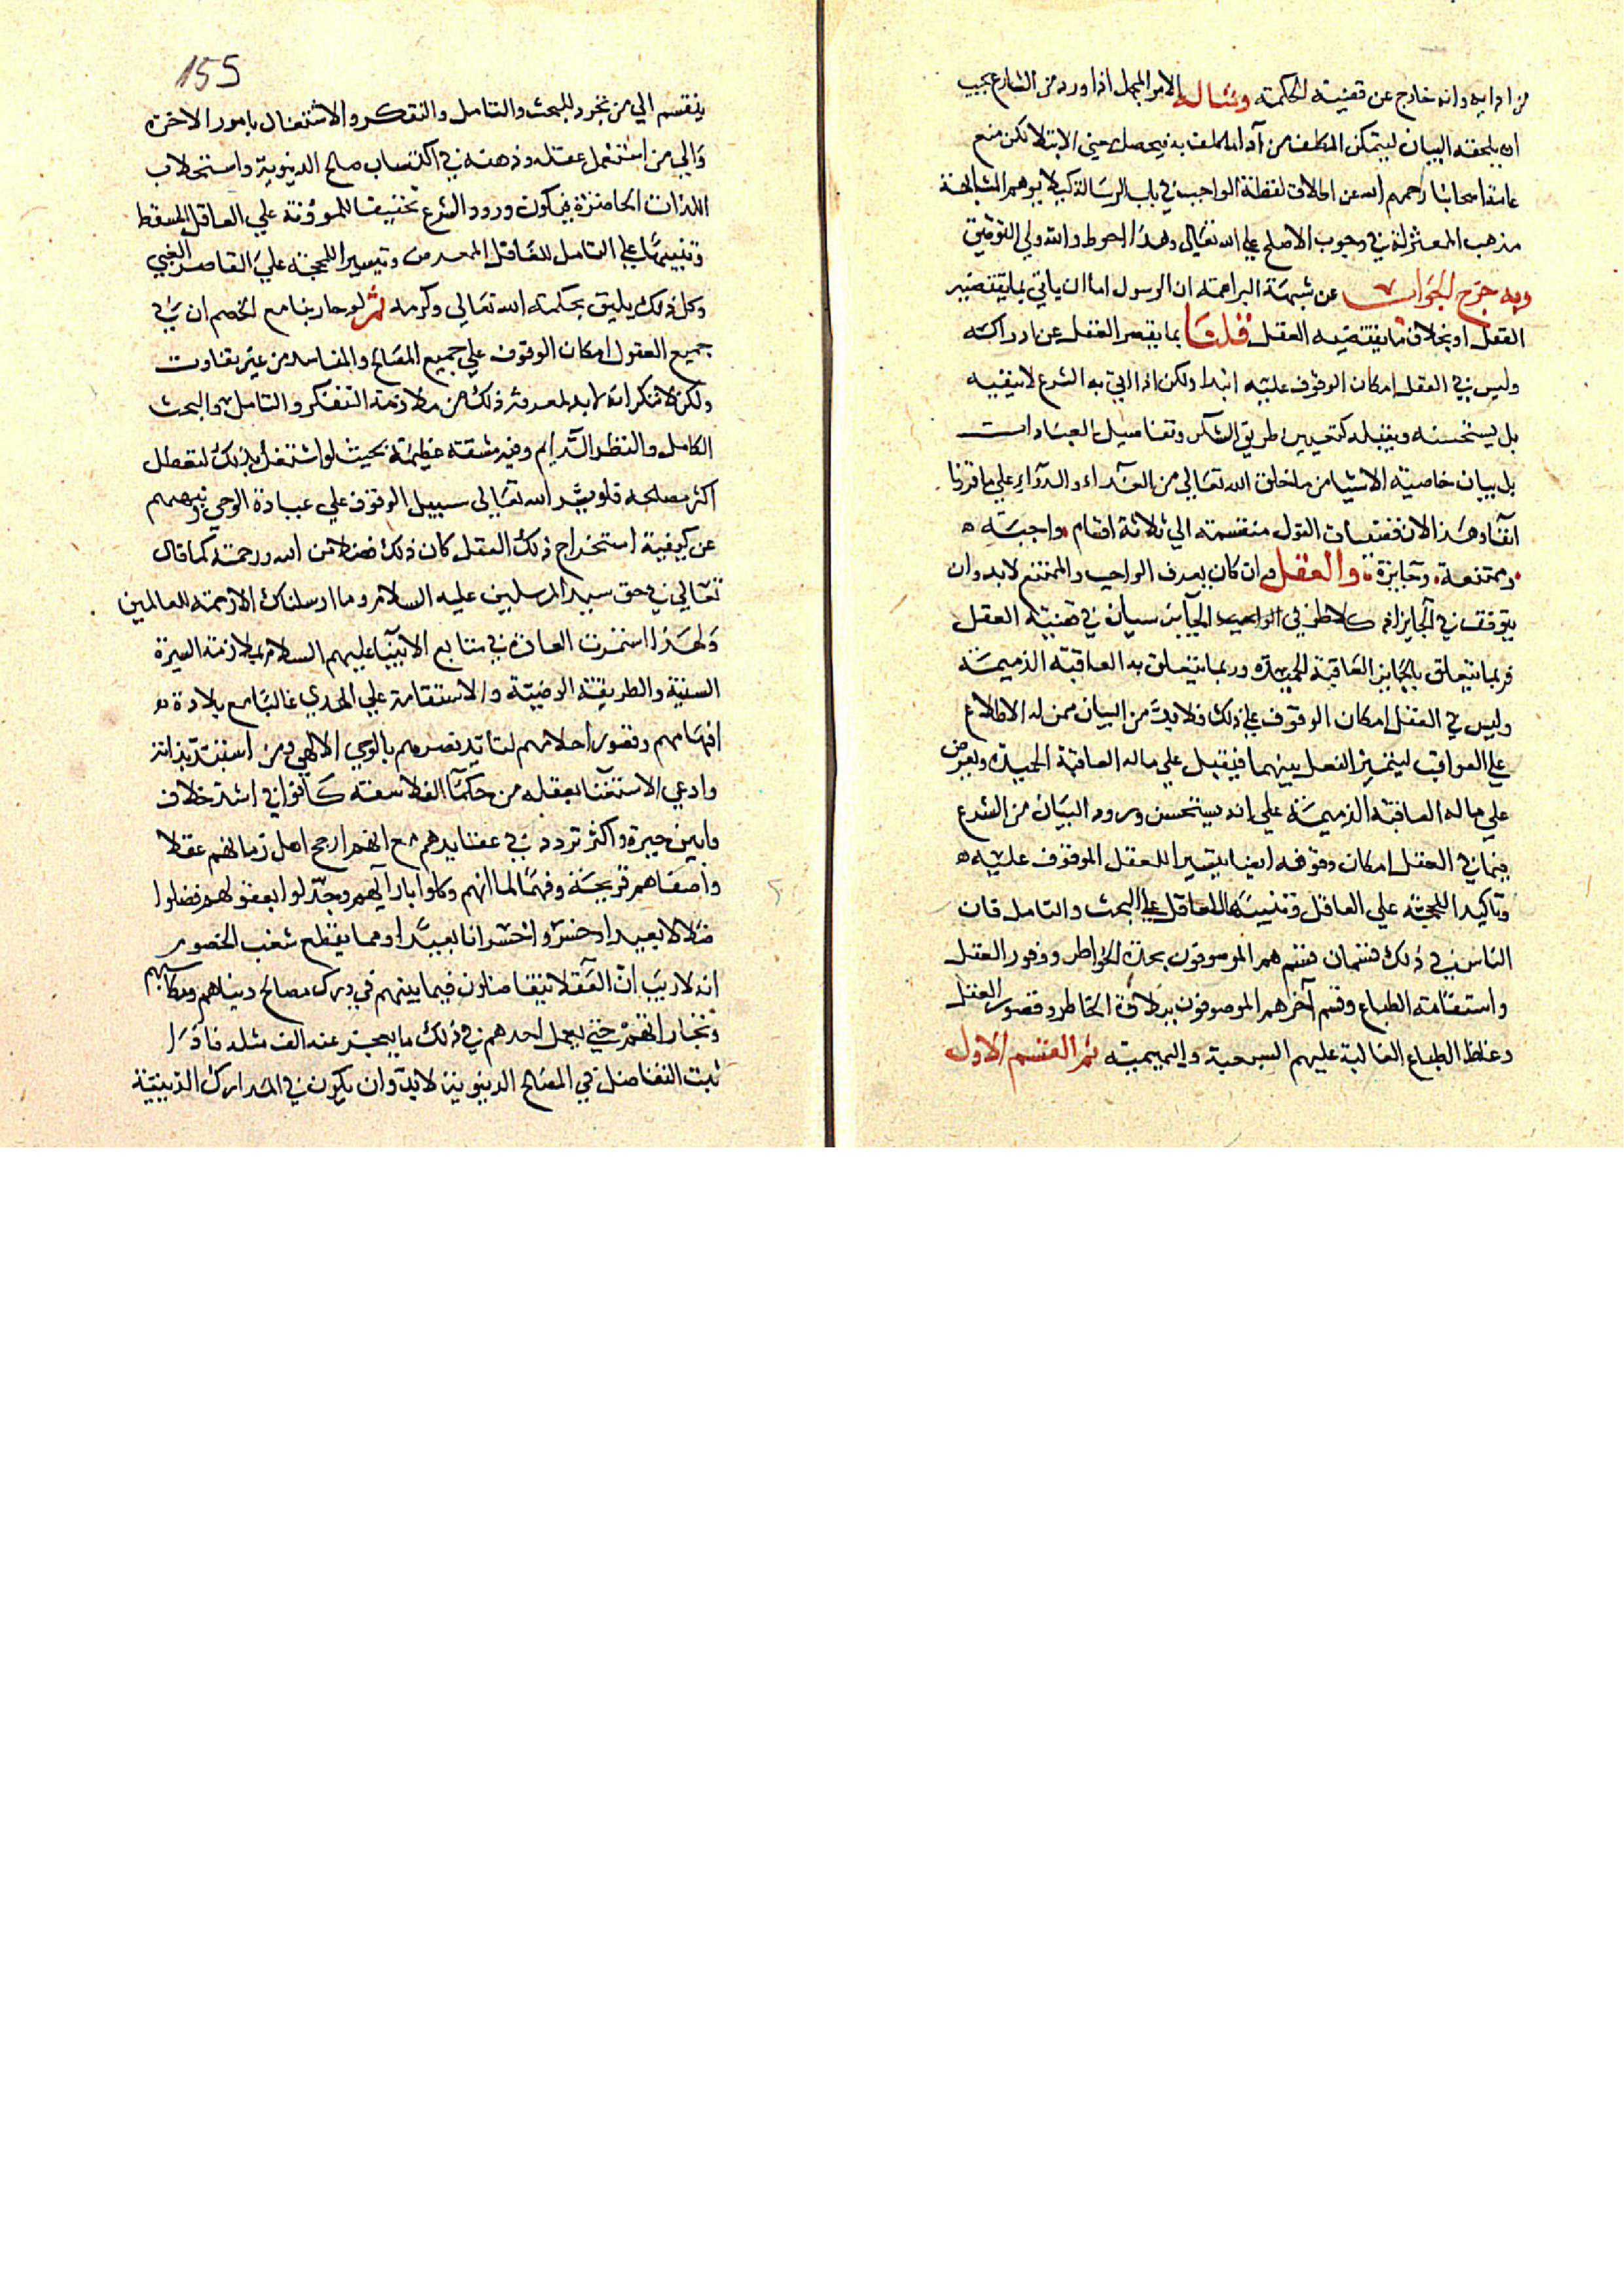 من امرا به وانه خارج عن قضية الحكمة ومثاله الامر المجمل اذا ورد من الشارع يجب
ان يلحقه البيان ليتمكن المكلف من آداء المكلف به فيحصل معنى الابتلا لكن منع
عامة اصحابنا رحمهم الله عن اطلاق لفظة الواجب في باب الرسالة كيلا يوهم المشابهة
مذهب المعتزلة في وجوب الاصلح على الله تعالى وهذا احوط والله ولي التوفيق
وبه خرج الجواب عن شبهة البراهمة ان الرسول اما ان ياتي بما يقتضيه
العقل او بخلاف ما يقتضيه العقل قلنا بما يقصر العقل عن ادراكه
وليس في العقل امكان الوقوف عليه ابتدا ولكن اذا اتى به الشرع لا ينفيه
بل يستحسنه ويقبله كتعيين طريق الشكر وتفاصيل العبادات
بل بيان خاصية الاشيا من ما خلق الله تعالى من الغذاء والدواء على ما قررنا
آنفا وهذا لان قضيات العقول منقسمة الي ثلاثة اقسام واجبة
وممتنعة وجايزة والعقل وان كان يعرف الواجب والممتنع لا بد وان
يتوقف في الجايز اذ كلا طرفي الجايز سيان في قضية العقل
فربما يتعلق بالجايز العاقبة الحميدة وربما يتعلق به العاقبة الذميمة
وليس في العقل امكان الوقوف على ذلك فلا بد من البيان ممن له الاطلاع
على العواقب ليتميز الفعل بينهما فيقبل علي ماله العاقبة الحميدة ويعرض
علي ما له العاقبة الذميمة علي انه يستحسن ورود البيان من الشرع
فيما في العقل امكان وقوفه ايضا تيسيرا للعقل الموقوف عليه
وتاكيدا للحجة علي العاقل وتنبيها للعاقل على البحث والتامل فان
الناس في ذلك قسمان قسم هم الموصوفون بحدة الخواطر ووفور العقل
واستقامة الطباع وقسم آخر هم الموصوفون ببلادة الخاطر وقصور العقل
وغلظ الطباع الغالبة عليهم السبعية والبهيمية ثم القسم الاول
155
ينقسم الي من تجرد للبحث والتامل والتفكر والاشتغال بامور الاخرة
والي من استعمل عقله وذهنه في اكتساب مصالح الدنيوية واستجلاب
اللذات الحاضرة فيكون ورود الشرع تخفيفا للموؤنة علي العاقل المسقط
وتنبيها علي التامل للغافل المعرض وتيسيرا للحجة علي القاصر الغبي
وكل ذلك يليق بحكمة الله تعالي وكرمه ثم لو جارينا مع الخصم ان في
جميع العقول امكان الوقوف علي جميع المصالح والمفاسد من غير تفاوت
ولكن لا تنكر انه لا بد لمعرفة ذلك من ملازمة التفكر والتامل والبحث
الكامل والنظر الدايم وفيه مشقة عظيمة بحيث لو اشتغل بذلك لتعطل
اكثر مصالحه فلو يسر الله تعالى سبيل الوقوف علي عبادة الوحي
عن كيفية استخراج ذلك العقل كان ذلك فضلا من الله ورحمة كما قال
تعالي في حق سيد المرسلين عليه السلام وما ارسلناك الا رحمة للعالمين
ولهذا استمرت العادة في متابع الانبيا عليهم السلام بملازمة السيرة
السنية والطريقة الرضية والاستقامة علي الهدي غالبا مع بلادة
افهامهم وقصور احلامهم لتايد نصرهم بالوحي الالهي ومن استبد بذاته
وادعي الاستغنا بعقله من حكما الفلاسفة كانوا في اشد خلاف
وابين حيرة واكثر تردد في عقايدهم مع انهم ارجح اهل زمانهم عقلا
واصفاهم قريحة وفهما لما انهم وكلوا بارايهم وجدلوا بعقولهم فضلوا
ضلالا بعيدا وخسروا خسرانا بعيدا ومما يقطع شغب الخصوم
انه لا ريب ان العقلا يتفاضلون فيما بينهم في درك مصالح دنياهم ومكاسبهم
وتجاراتهم حتي يعمل احدهم في ذلك ما يعجز عنه الف مثله فاذا
ثبت التفاضل في المصالح الدنيوية لا بد وان يكون في المدارك الدينية